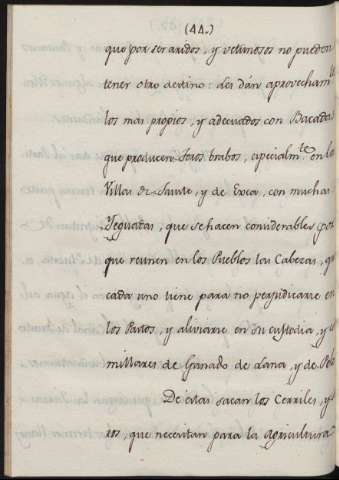 (44.)
que por ser aridos, y vetunosos no pueden
tener otro destino: les dán aprovecham.to
los mas propios, y adecuados con Bacadas
que producen Toros brabos, especialm.te en las
Villas de Sauste, y de Exea, con muchas
Yeguadas, que se hacen considerables por
que reunen en los Pueblos las Cabezas, que
cada uno tiene para no perjudicarse en
los Pastos, y aliviarse en su custodia, y
millares de Ganado de Lana, y de Pelo
De estas sacan los Cerriles, y
os, que necesitan para la agricultura